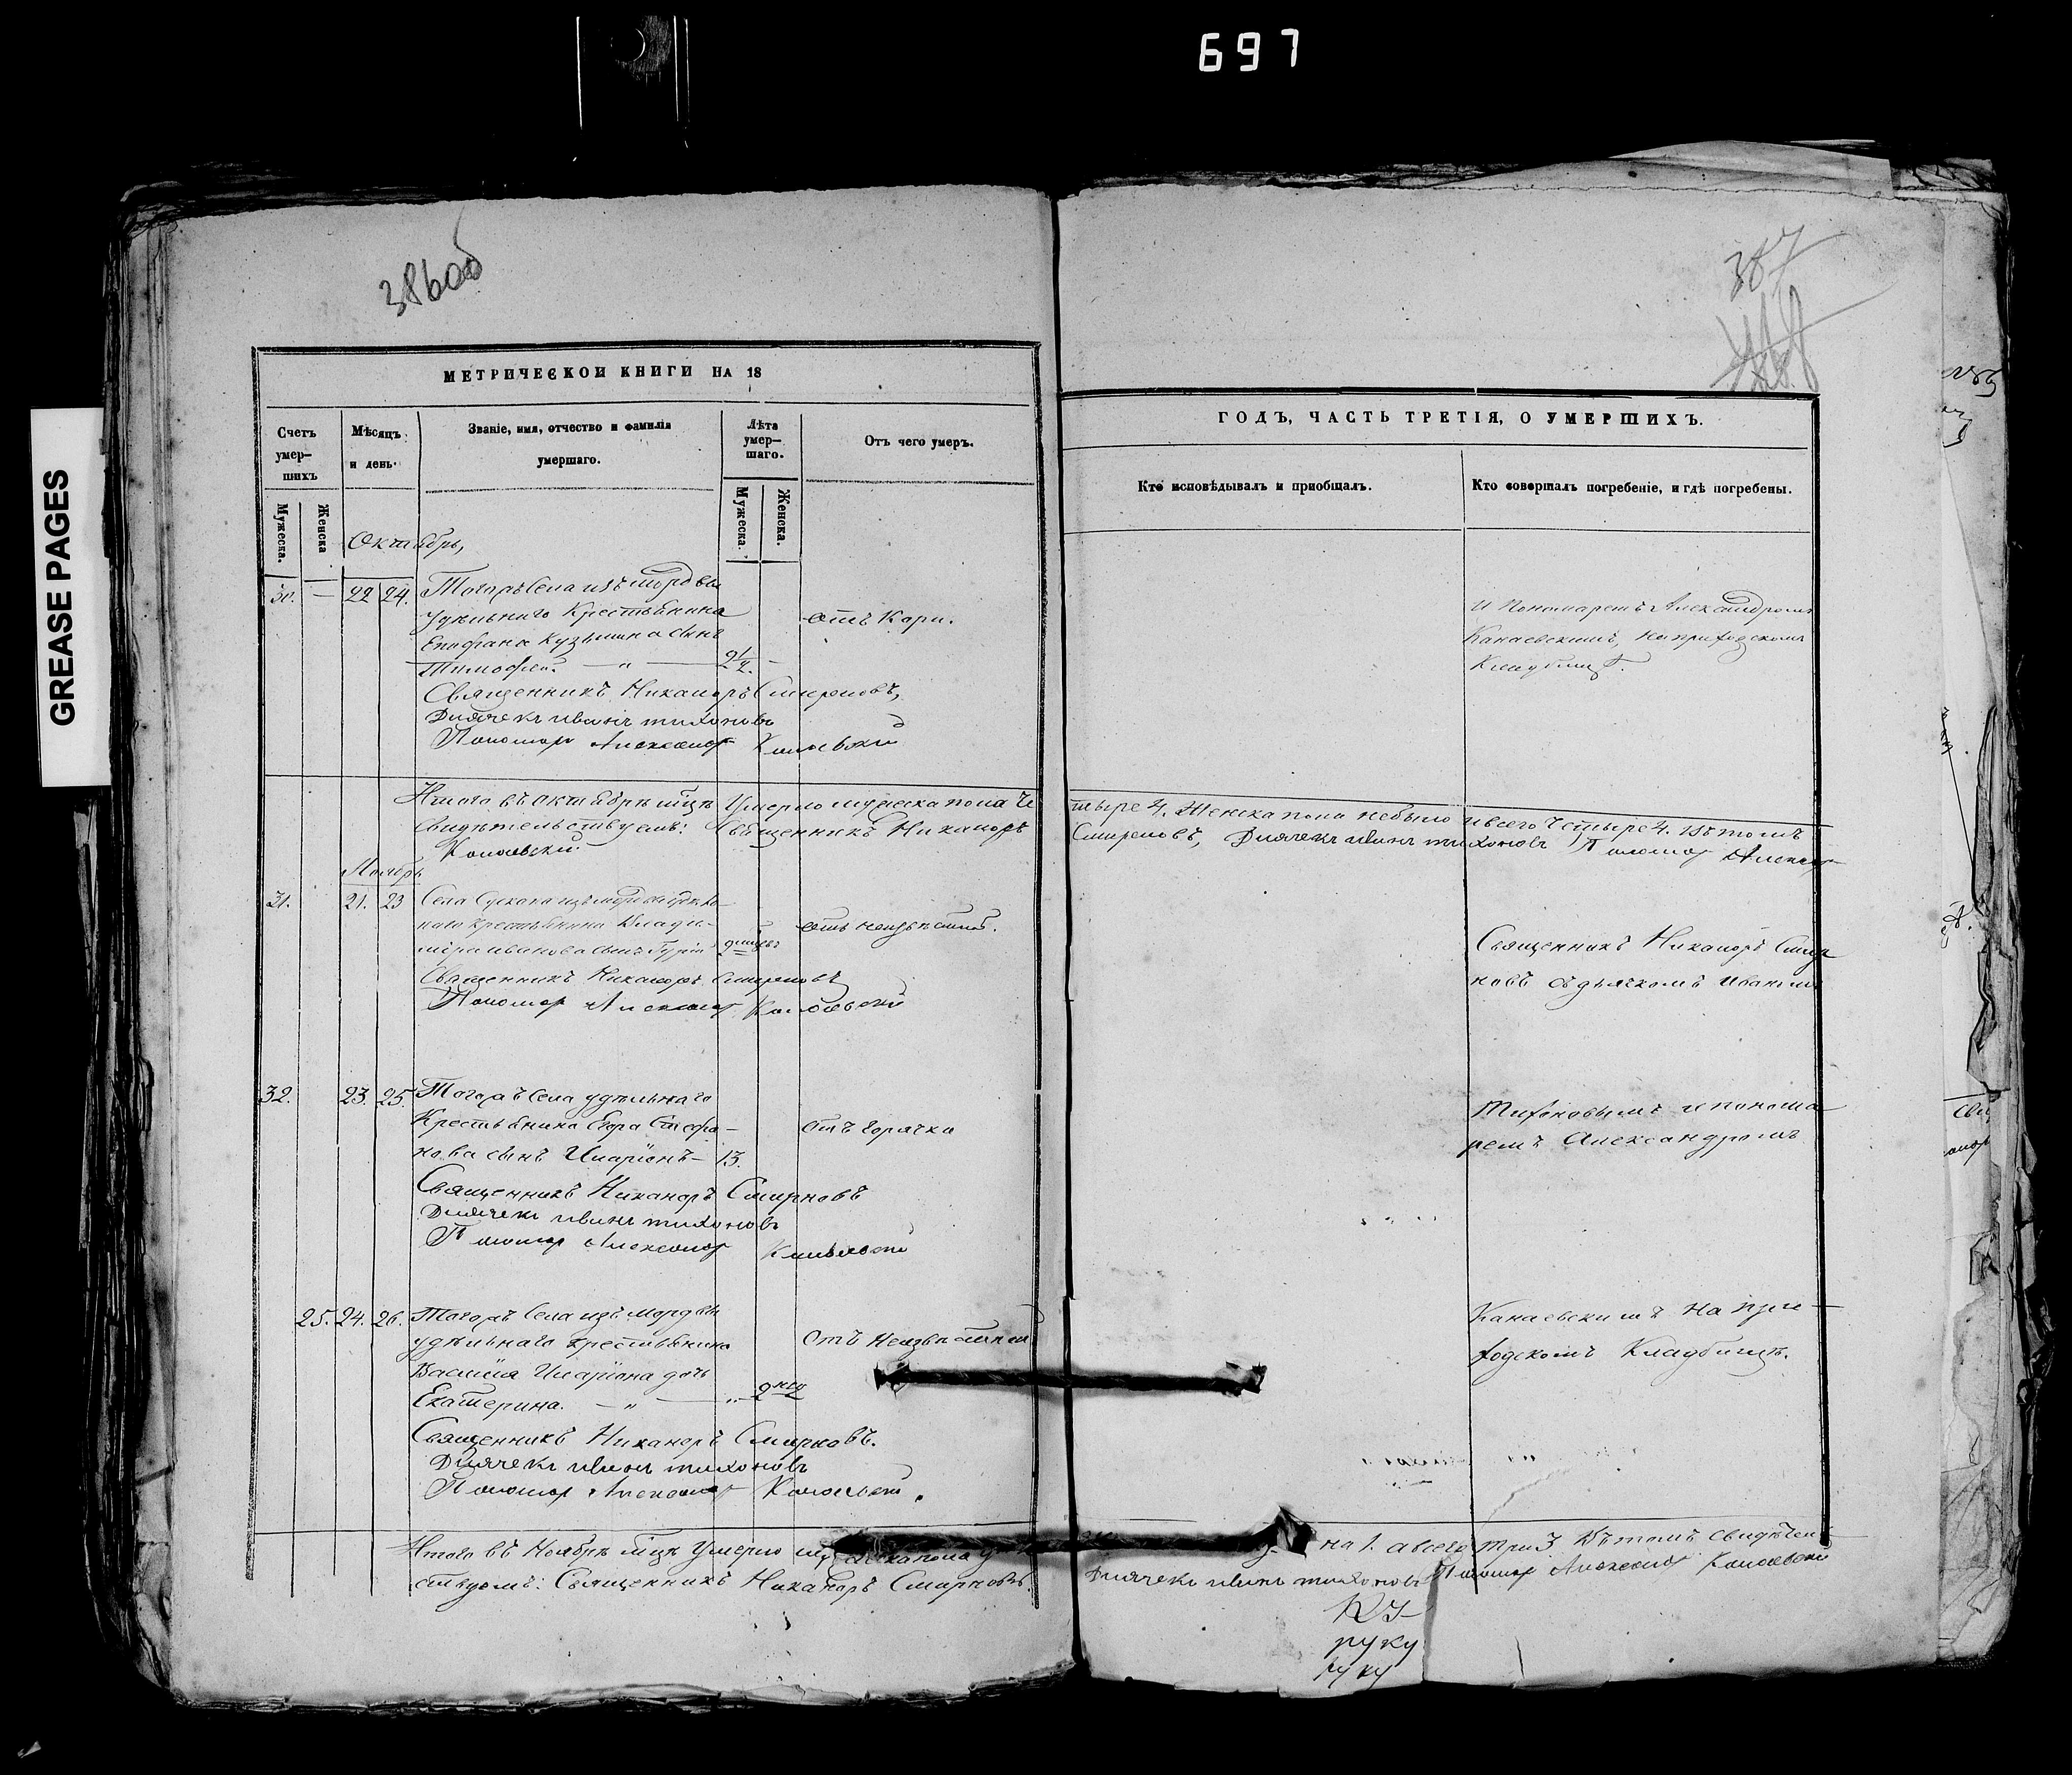 697
GREASE PAGES
386 об
387
МЕТРИЧЕСКОИ КНИГИ НА 18
Счетъ умер—шихъ
Мѣсяцъ и день.
Званіе, имя, отчество и фамилія умершаго.
Лѣта умер—шаго.
Отъ чего умеръ.
Мужеска.
Женска
Мужеска.
Женска.
ГОДЪ, ЧАСТЬ ТРЕТІЯ, О УМЕРШИХЪ.
Кто исповѣдывалъ и пріобщалъ.
Кто совершалъ погребеніе, и гдѣ погребены.
Октябрь,
30. — 22 24. Тогожъ Села изъ мордвы
удѣльнаго Крестьянина отъ Кори.
Епифана Кузьмина сынъ
Тимофей. — „ — 2½. —
Священникъ Никаноръ Смирновъ,
Дьячекъ иванъ тихоновъ
Пономарь Александръ Канаевский
И Пономаремъ Александромъ
Канаевскимъ, на приходскомъ
Кладбищѣ.
Итого въ октябрѣ мцѣ Умерло мужеска пола че
тыре 4. Женска пола небыло и всего Четыре 4. Въ томъ
свидѣтельствуемъ: Священникъ Никаноръ
Смирновъ, Дьячекъ иванъ тихоновъ Пономарь Александръ
Канаевский
Ноябрь
31. 21. 23 Села изъ мордвы удѣль
наго крестьянина Влади- отъ неизвѣстной.
мира иванова сынъ Гурій
Священникъ Никаноръ Смирновъ
Пономарь Александръ Канаевский
Священникъ Никаноръ Смир
новъ съ дьячкомъ Иваномъ
32. 23. 25. Тогожъ Села удѣльнаго
Крестьянина Егора Стефа— отъ Горячки
нова сынъ Иларіонъ— 13.
Священникъ Никаноръ Смирновъ
Дьячекъ иванъ тихоновъ
Пономарь Александръ Канаевский
Тихоновымъ и понома
ремъ Александромъ
25. 24. 26. Тогожъ Села изъ мордвы
удѣльнаго крестьянина отъ Неизвѣстной
Василія Иларіона дочь
Екатерина. — „ — „ 2 нед
Священникъ Никаноръ Смирновъ.
Дьячекъ иванъ тихоновъ
Пономарь Александръ Канаевский.
Канаевскимъ на при—
ходскомъ Кладбищѣ.
Итого въ Ноябрѣ мцѣ Умерло мужеска пола
на 1. а всего три 3 Въ томъ свидѣтель
ствуемъ: Священникъ Никаноръ Смирновъ.
Дьячекъ иванъ тихоновъ Пономарь Александръ Канаевский
руку
руку